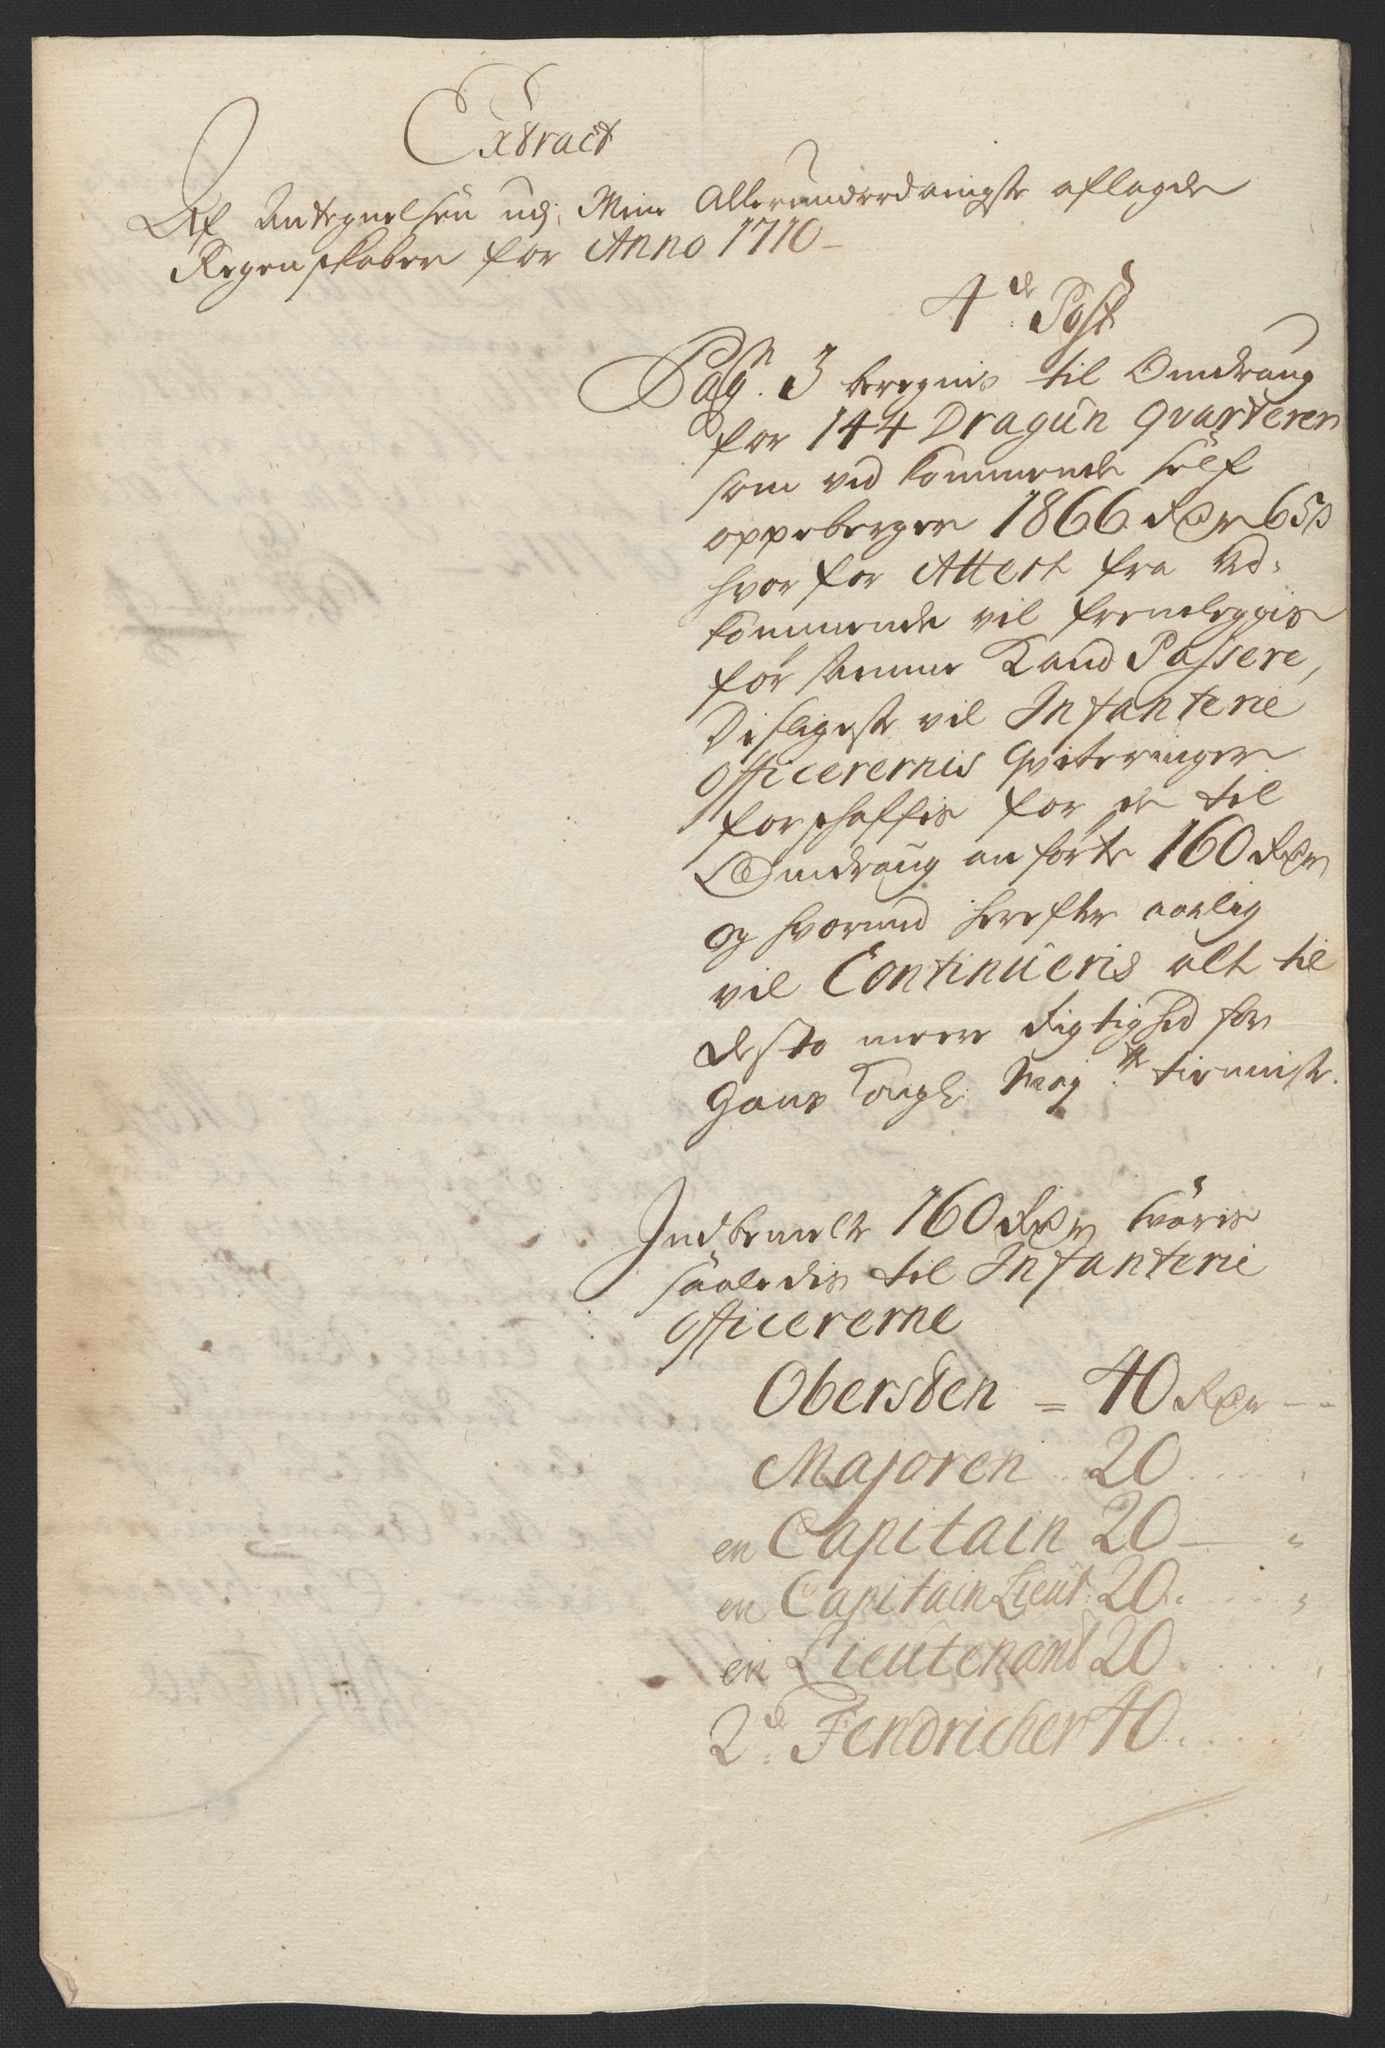 Extract
Af Antegnelsen udj Mine Allerunderdanigste aflagde
Regenskaber for Anno 1710
4de Post
Pag. 3 beregnis til Omdrang
for 144 Dragun Qvarterer
som ved kommende self
oppeberger 1866 Rdr 65 s
hvorfor Attest fra Ved-
kommende vil fremleggis
før samme Kand Passere,
Disligeste vil Infanterie
Officerernis Qviteringer
forschaffis for de til
Omdrang anførte 160 Rdr
og hvormed herefter aarlig
vil Continueris alt til
desto meere Rigtighed for
Hans Kongl. May.tt
Indbemelte 160 Rdr
saaledis til Infanterie
Officererne
Obersten = 40 Rdr
Majoren 20
en Capitain 20
en Capitain Lieut. 20
en Lieutenant 20
2de Fendricher 40